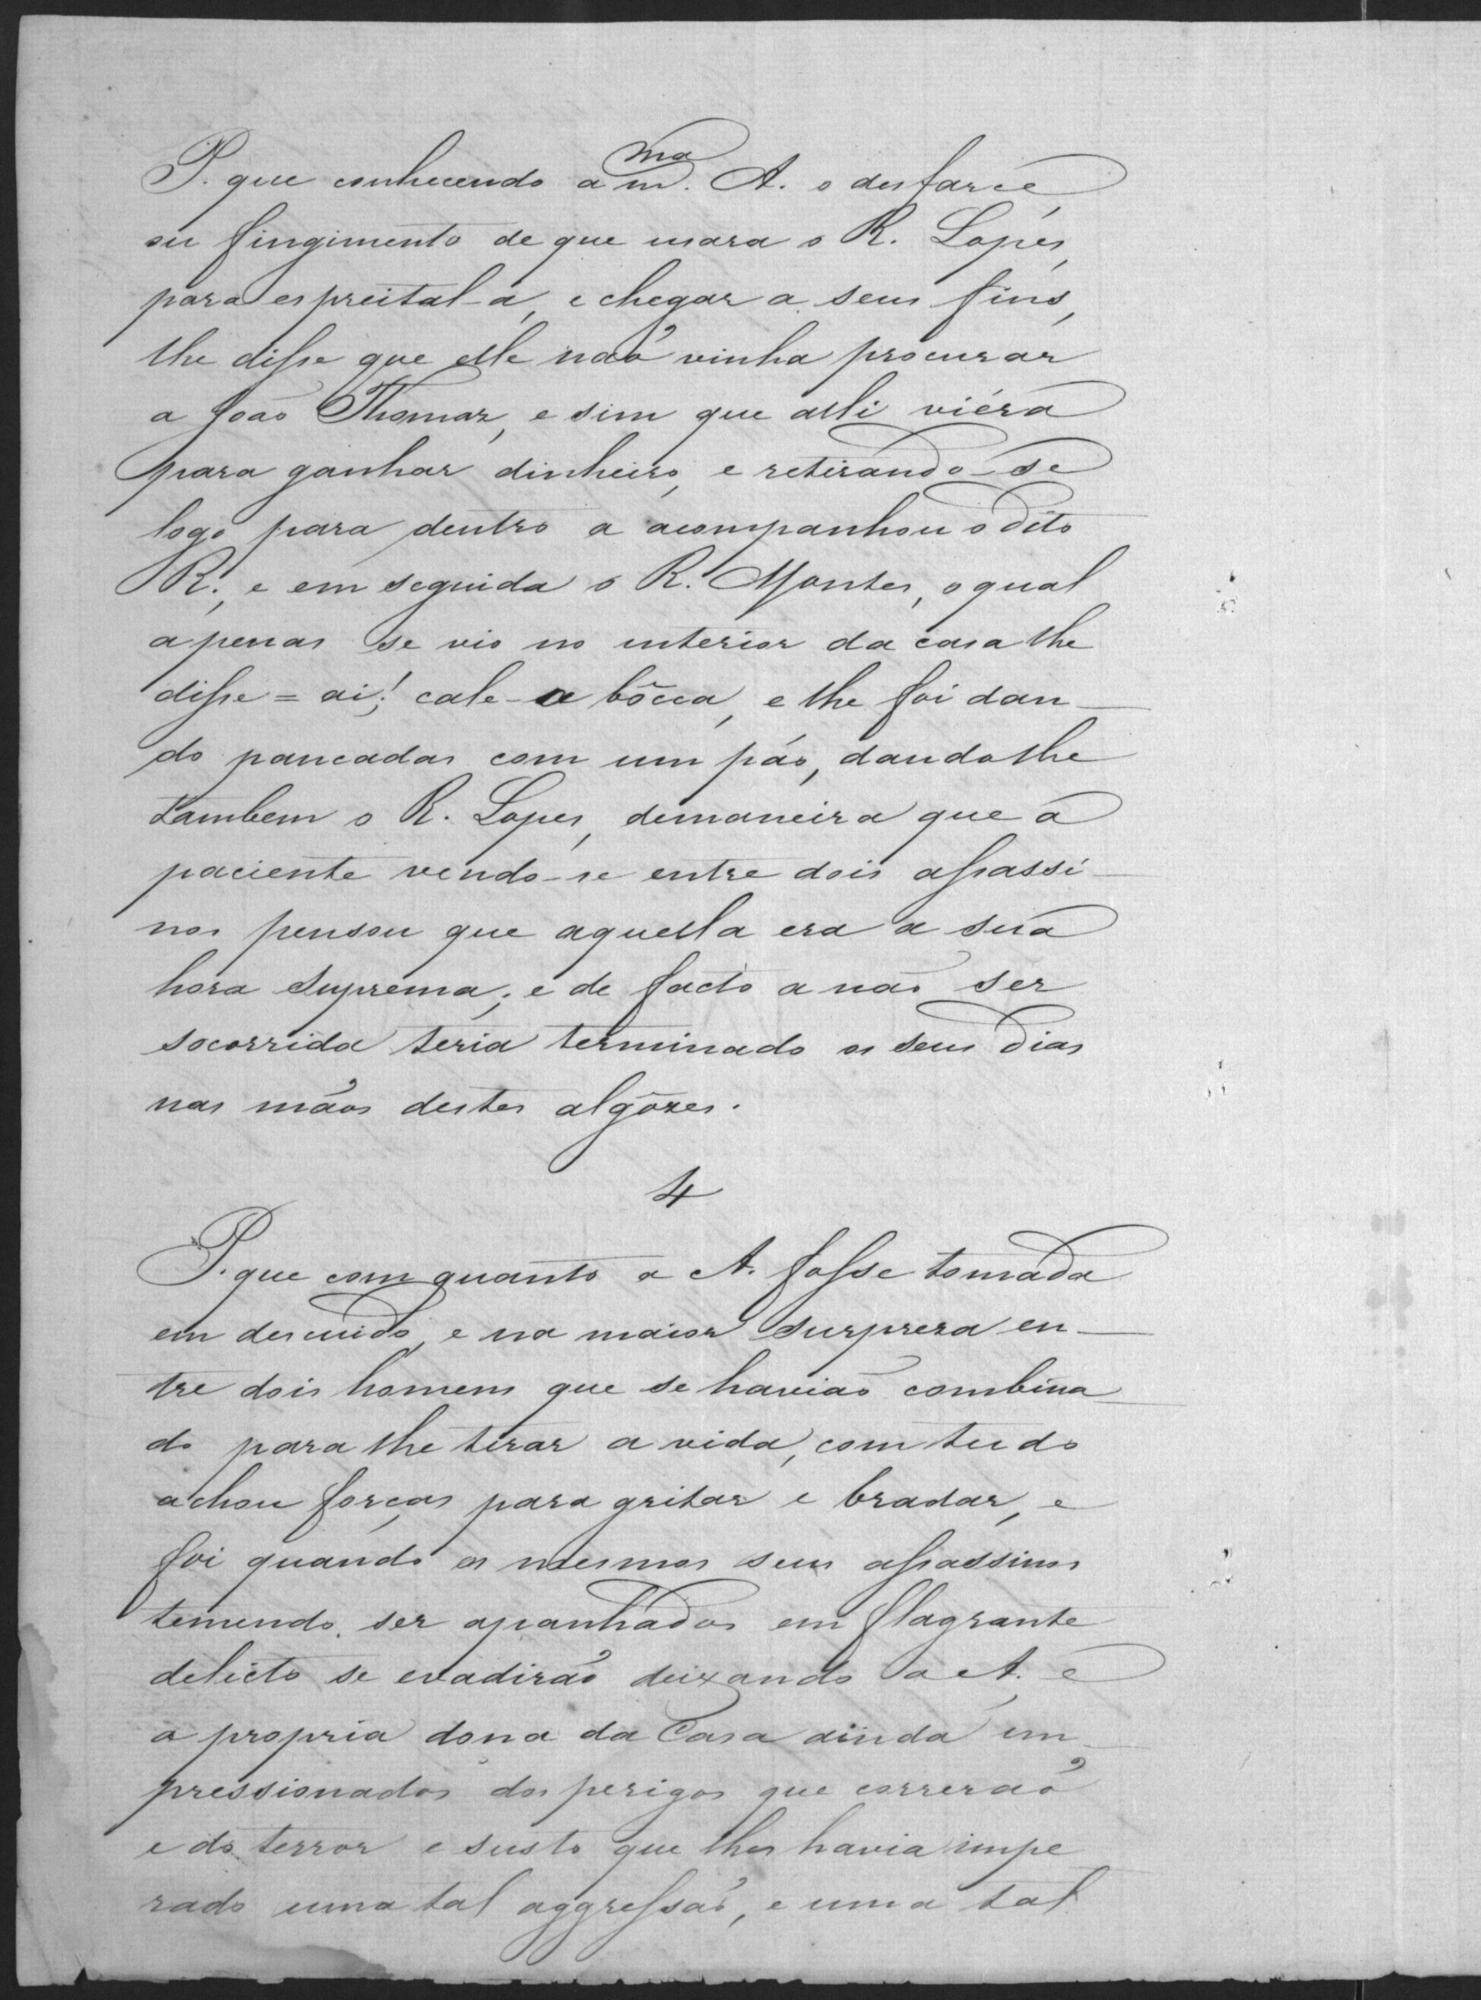 P. que conhecendo a m.ma A. o desfarce,
ou fingimento de que usara o R. Lopes,
para espreital-a, e chegar a seus fins,
lhe disse que elle naõ vinha procurar
a Joaõ Thomaz, e sim que alli viéra
para ganhar dinheiro, e retirando-se
logo para dentro a acompanhou o dito
R., e em seguida o R. Montes, o qual
apenas se vio no interior da casa lhe
disse = ai! cale-a bôcca, e lhe foi dan-
do pancadas com um páo, dando lhe
tambem o R. Lopes, demaneira que a
paciente vendo-se entre dois assassi-
nos pensou que aquella era a sua
hora suprema; e de facto a naõ ser
socorrida teria terminado os seus dias
nas mãos destes algôzes.
4
P. que com quanto a A. fosse tomada
em descuido, e na maior surpreza en-
tre dois homens que se haviaõ combina-
do para lhe tirar a vida, com tudo
achou forças para gritar e bradar, e
foi quando os mesmos seus assassinos
temendo ser apanhados em flagrante
delicto se evadiraõ deixando a A. e
a propria dona da Casa ainda im-
pressionados dos perigos que correraõ
e do terror e susto que lhes havia impe
rado uma tal aggressaõ, e uma tal